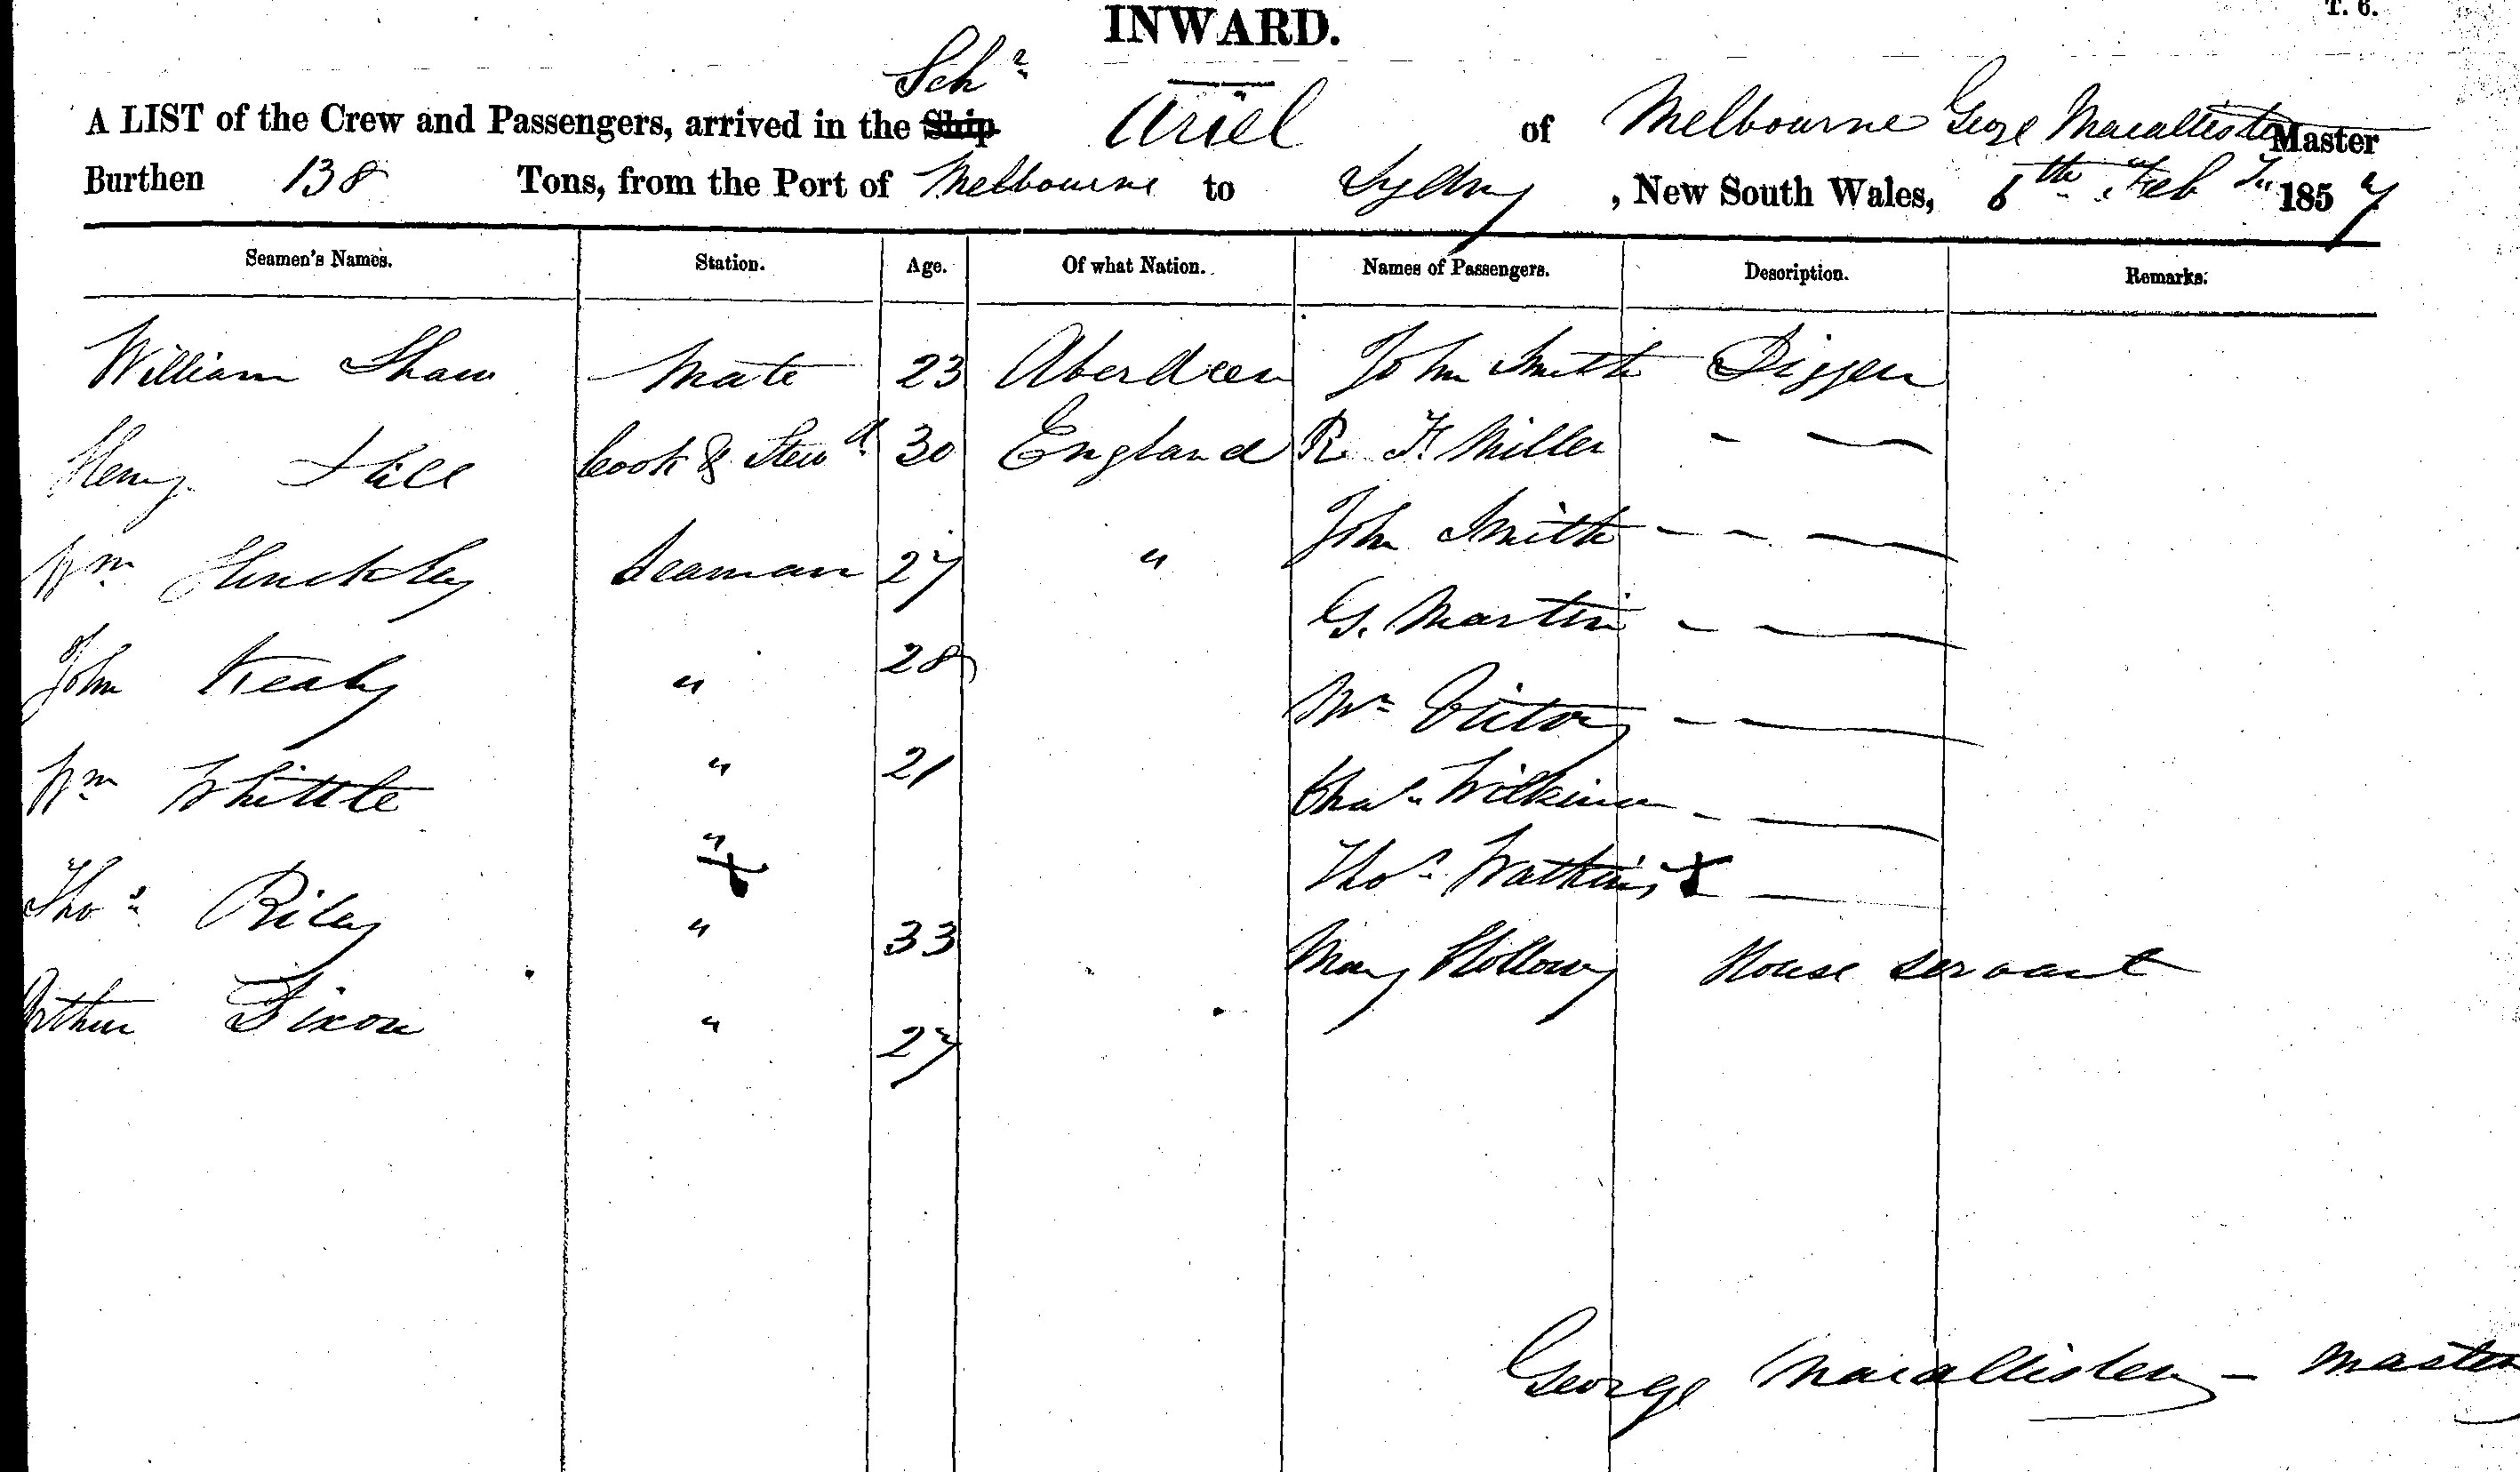 T. 6.
INWARD.
Schr
A LIST of the Crew and Passengers, arrived in the Ship Ariel of Melbourne George Macallister Master
Burthen 138 Tons, from the Port of Melbourne to Sydney, New South Wales, 6th Feb 1857
Seamen's Names. Station. Age. Of what Nation. Names of Passengers. Description. Remarks.
William Shaw Mate 23 Aberdeen John Smith Digger
Henry Hill Cook & Stewd 30 England R. F. Miller - —
Wm Hinckley Seaman 27 " John Smith - - —
John Kealy " 28 G. Martin - —
Wm Whittle " 21 Mr - —
" Chas Wilkinson - —
Thos Riley " 33 Thos Watkins —
Arthur Dixon " 27 Mary Holloway House servant
George Macallister - Master